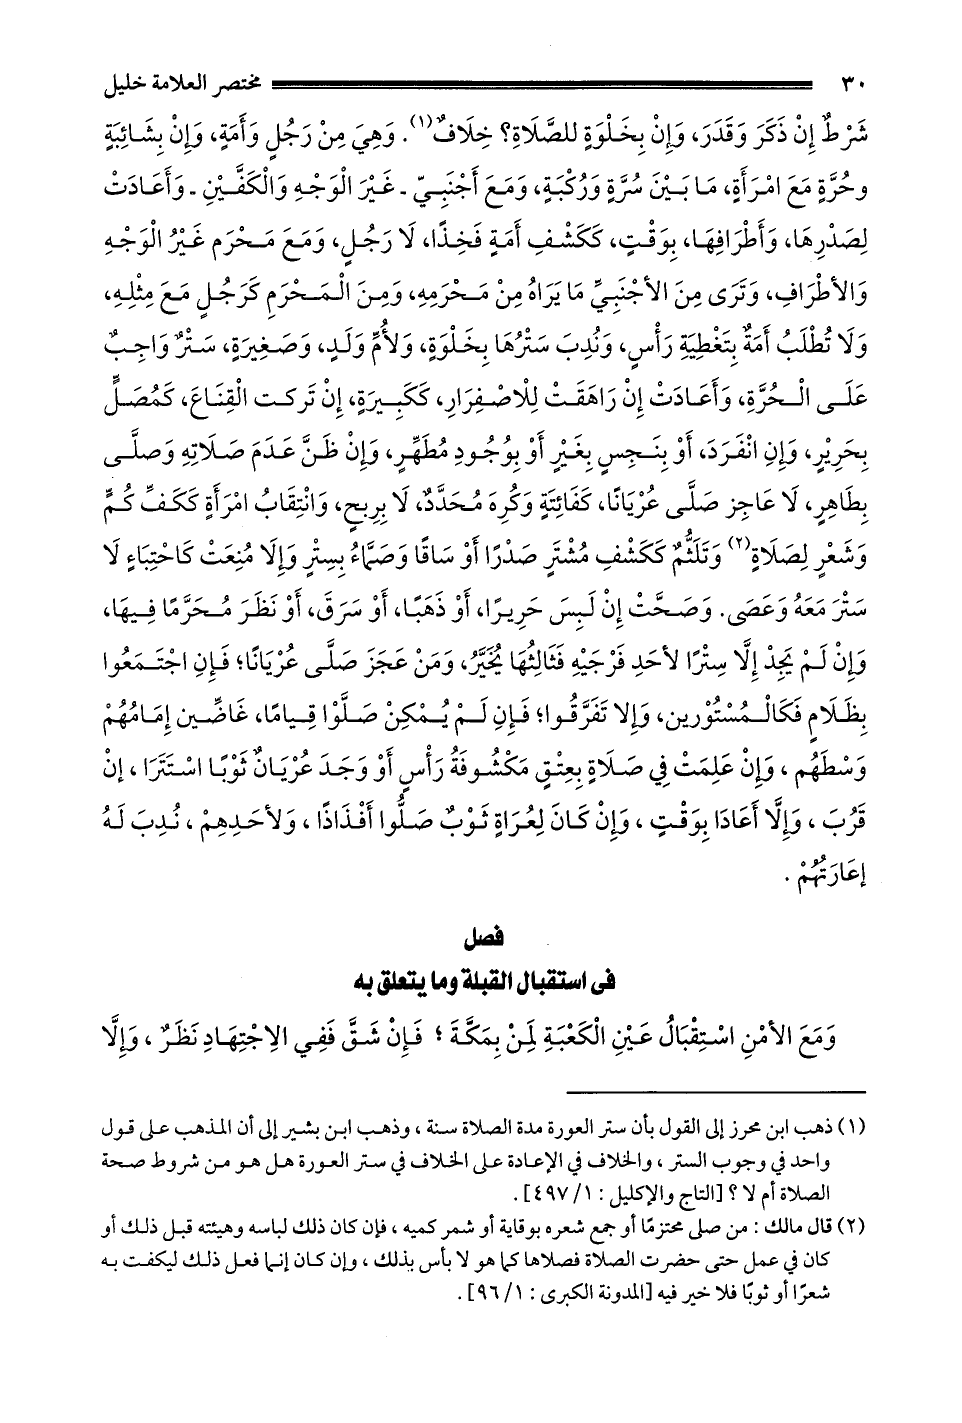 ٣٠ مختصر العلامة خليل
شَرْطٌ إِنْ ذَكَرَ وَقَدَرَ، وَإِنْ بِخَلْوَةٍ للصَّلَاةِ؟ خِلَافٌ(١). وَهِيَ مِنْ رَجُلٍ وَأَمَةٍ، وَإِنْ بِشَائِبَةٍ
وحُرَّةٍ مَعَ امْرَأَةٍ، مَا بَيْنَ سُرَّةٍ وَرُكْبَةٍ، وَمَعَ أَجْنَبِيّ ـ غَيْرَ الْوَجْهِ وَالْكَفَّيْنِ ـ وَأَعَادَتْ
لِصَدْرِهَا، وَأَطْرَافِهَا، بِوَقْتٍ، كَكَشْفِ أَمَةٍ فَخِذًا، لَا رَجُلٍ، وَمَعَ مَحْرَمٍ غَيْرُ الْوَجْهِ
وَالأَطْرَافِ، وَتَرَى مِنَ الأَجْنَبِيِّ مَا يَرَاهُ مِنْ مَحْرَمِهِ، وَمِنَ الْمَحْرَمِ كَرَجُلٍ مَعَ مِثْلِهِ،
وَلَا تُطْلَبُ أَمَةٌ بِتَغْطِيَةِ رَأْسٍ، وَنُدِبَ سَتْرُهَا بِخَلْوَةٍ، وَلأُمِّ وَلَدٍ، وَصَغِيرَةٍ، سَتْرٌ وَاجِبٌ
عَلَى الْحُرَّةِ، وَأَعَادَتْ إِنْ رَاهَقَتْ لِلْاصْفِرَارِ، كَكَبِيرَةٍ، إِنْ تَركت الْقِنَاعَ، كَمُصَلٍّ
بِحَرِيْرٍ، وَإِنِ انْفَرَدَ، أَوْ بِنَجِسٍ بِغَيْرٍ أَوْ بِوُجُودِ مُطَهِّرٍ، وَإِنْ ظَنَّ عَدَمَ صَلَاتِهِ وَصلَّى
بِطَاهِرٍ، لَا عَاجِز صَلَّى عُرْيَانًا، كَفَائِتَةٍ وَكُرِهَ مُحَدَّدٌ، لَا بِرِيحٍ، وَانْتِقَابُ امْرَأَةٍ كَكَفِّ كُمٍّ
وَشَعْرٍ لِصَلَاةٍ(٢) وَتَلَثُّمٌ كَكَشْفِ مُشْتَرٍ صَدْرًا أَوْ سَاقًا وَصَمَّاءُ بِسِتْرٍ وَإِلَا مُنِعَتْ كَاحْتِبَاءٍ لَا
سَتْرَ مَعَهُ وَعَصَى. وَصَحَّتْ إِنْ لَبِسَ حَرِيرًا، أَوْ ذَهَبًا، أَوْ سَرَقَ، أَوْ نَظَرَ مُحَرَّمًا فِيهَا،
وَإِنْ لَمْ يَجِدْ إِلَّا سِتْرًا لأَحَدِ فَرْجَيْهِ فَثَالِثُهَا يُخَيَّرُ، وَمَنْ عَجَزَ صَلَّى عُرْيَانًا؛ فَإِن اجْتَمَعُوا
بِظَلَامٍ فَكَالْمَسْتُوْرين، وَإِلا تَفَرَّقُوا؛ فَإِن لَمْ يُمْكِنْ صَلَّوْا قِيامًا، غَاضِّين إِمَامُهُمْ
وَسْطَهُم ، وَإِنْ عَلِمَتْ فِي صَلَاةٍ بِعِتْقٍ مَكْشُوفَةُ رَأْسٍ أَوْ وَجَدَ عُرْيَانٌ ثَوْبًا اسْتَتَرَا ، إِنْ
قَرُبَ ، وَإِلَّا أَعَادَا بِوَقْتٍ ، وَإِنْ كَانَ لِعُرَاةٍ ثَوْبٌ صَلُّوا أَفْذَاذًا ، وَلأَحَدِهِمْ ، نُدِبَ لَهُ
إِعَارَتُهُمْ .
فصل
فى استقبال القبلة وما يتعلق به
وَمَعَ الأَمْنِ اسْتِقْبَالُ عَيْنِ الْكَعْبَةِ لِمَنْ بِمَكَّةَ ؛ فَإِنْ شَقَّ فَفِي الِاجْتِهَادِ نَظَرٌ ، وَإِلَّا
(١) ذهب ابن محرز إلى القول بأن ستر العورة مدة الصلاة سنة ، وذهب ابن بشير إلى أن المذهب على قول
واحد في وجوب الستر ، والخلاف في الإعادة على الخلاف في ستر العورة هل هو من شروط صحة
الصلاة أم لا ؟ [التاج والإكليل : ١/ ٤٩٧] .
(٢) قال مالك : من صلى محتزمًا أو جمع شعره بوقاية أو شمر كميه ، فإن كان ذلك لباسه وهيئته قبل ذلك أو
كان في عمل حتى حضرت الصلاة فصلاها كما هو لا بأس بذلك ، وإن كان إنما فعل ذلك ليكفت به
شعرًا أو ثوبًا فلا خير فيه [المدونة الكبرى : ١/ ٩٦] .